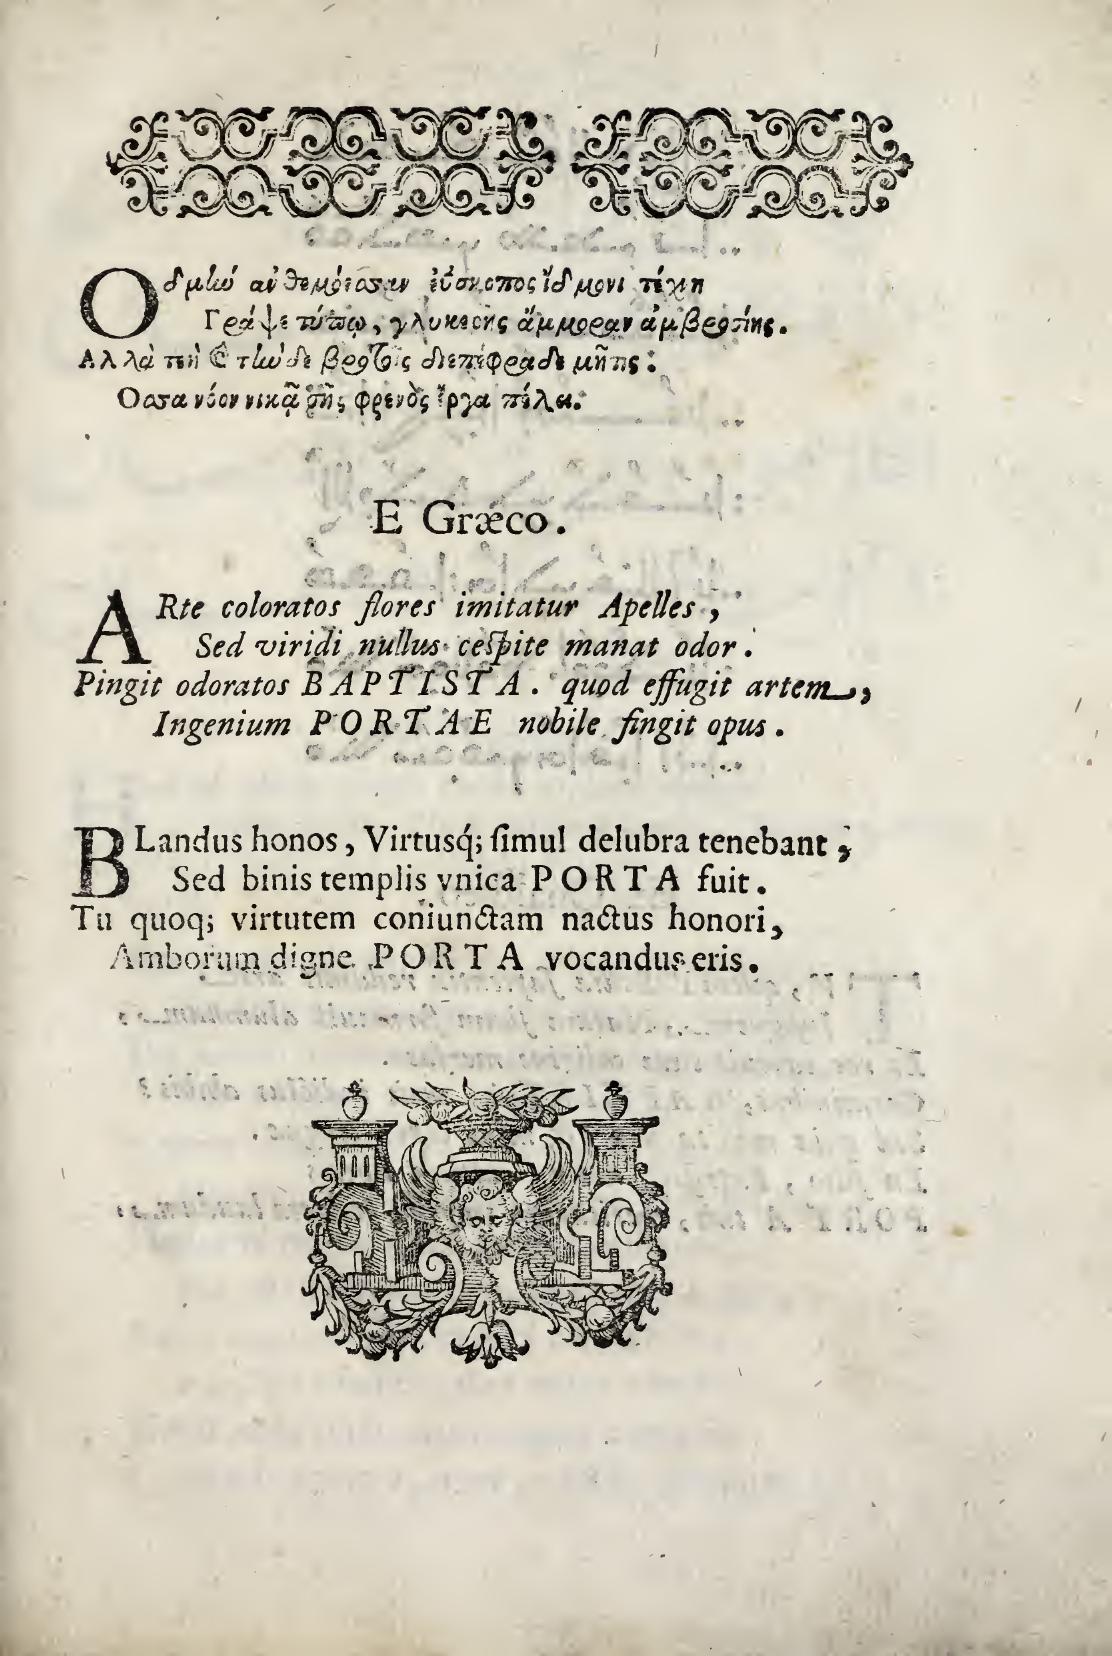 Οδμὼ ἀνθεμόεσσαν ἐΰσκοπος ἴδμονι τέχνη
Γράψε τύπῳ, γλυκερῆς ἄμμοραν ἀμβροσίης.
Αλλὰ τεὴ καὶ τὼδε βροτοῖς διεπέφραδε μῆτις:
Οσσα νόον νικᾷ σῆς φρενὸς ἔργα πέλει.
E Græco.
ARte coloratos flores imitatur Apelles,
Sed viridi nullus cespite manat odor.
Pingit odoratos BAPTISTA. quod effugit artem,
Ingenium PORTAE nobile fingit opus.
BLandus honos, Virtusq́; ſimul delubra tenebant,
Sed binis templis vnica PORTA fuit.
Tu quoq; virtutem coniunctam nactus honori,
Amborum digne PORTA vocandus eris.